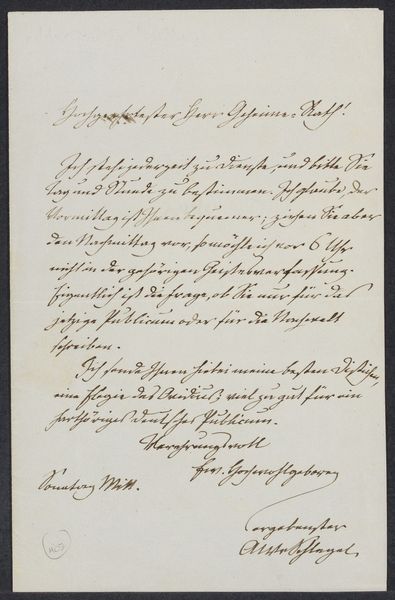 Hochgeehrtester Herr Geheime-Rath!
Ich stehe jederzeit zu Dienste, und bitte Sie
Tag und Stunde zu bestimmen. Ich glaube, der
Vormittag ist Ihnen bequemer; ziehen Sie aber
den Nachmittag vor, so möchte ich vor 6 Uhr
nicht in der gehörigen Geistesverfassung.
Eigentlich ist die Frage, ob Sie nur für das
jetzige Publicum oder für die Nachwelt
schreiben.
Ich sende Ihnen hiebei meine besten Distichen,
eine Elegie des Ovidius; viel zu gut für ein
harthöriges deutsches Publicum.
Verehrungsvoll
Ew. Hochwohlgeboren
Sonntag Mitt.
ergebenster
AWvSchlegel